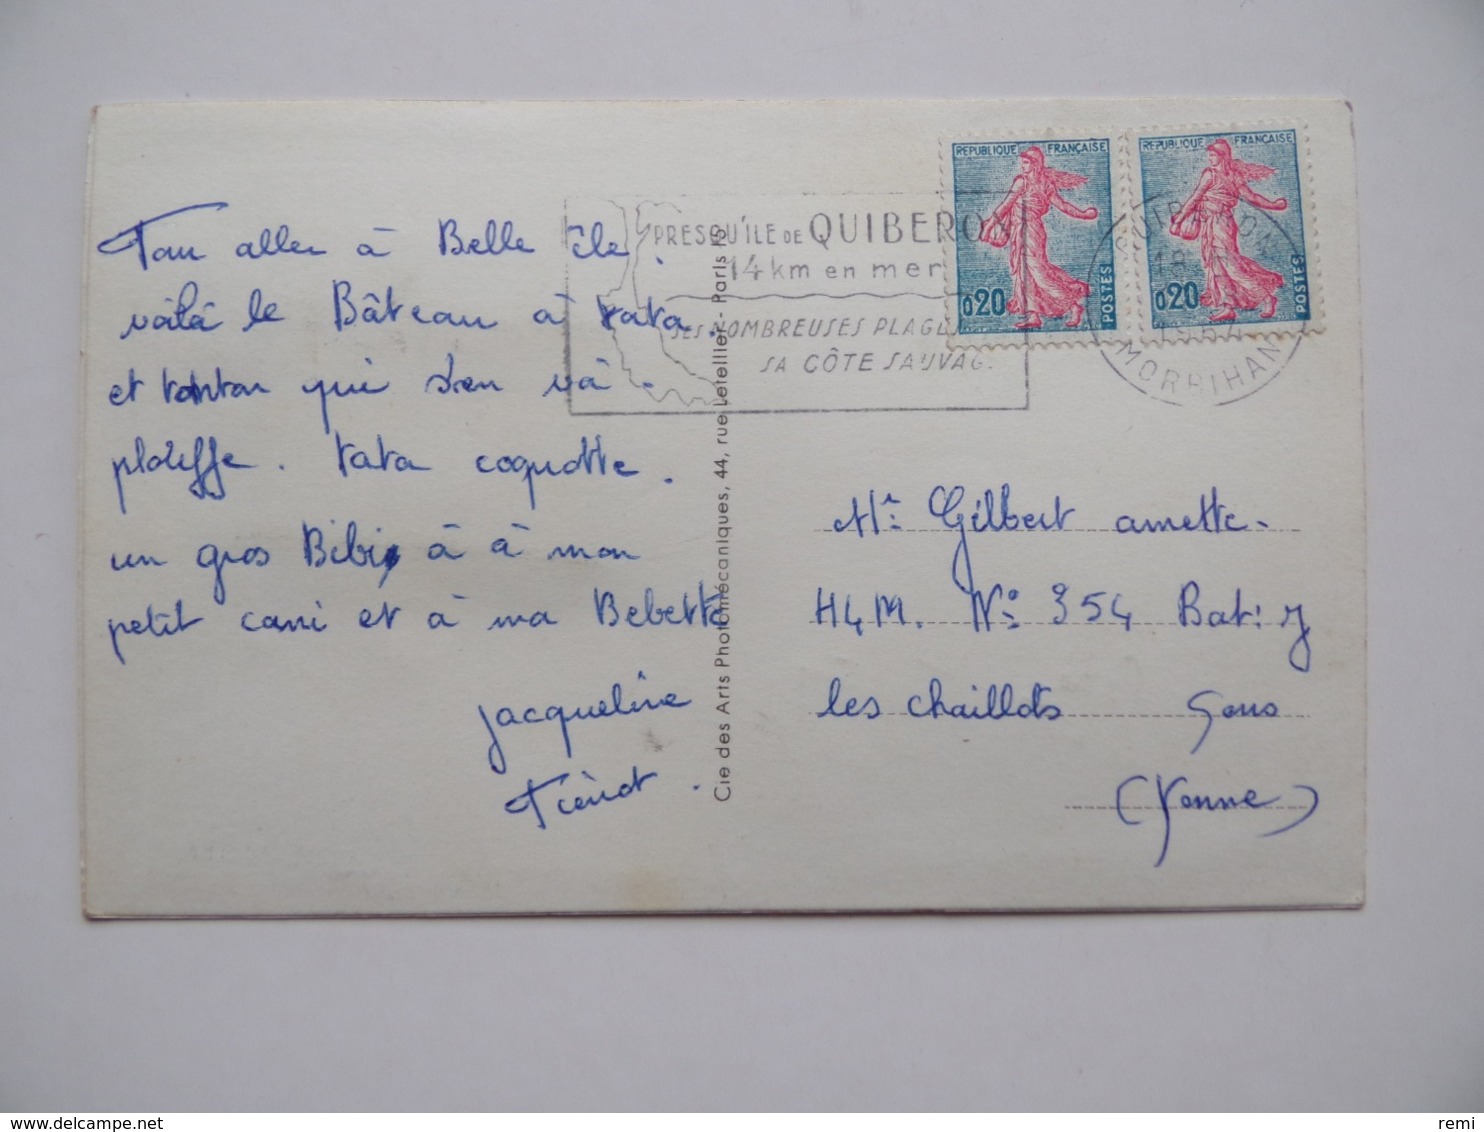 Pour aller à Belle île.
voilà le Bâteau à tata
et tonton qui s'en va.
plouffe. tata coquotte.
un gros Bibi à à mon
petit cani et à ma Bebette
Jacqueline
PRESQU'ILE DE QUIBERON
14 km en mer
SES NOMBREUSES PLAGES
SA CÔTE SAUVAGE
REPUBLIQUE FRANÇAISE
0,20
POSTES
REPUBLIQUE FRANÇAISE
0,20
POSTES
QUIBERON
18
MORBIHAN
Cie des Arts Photomécaniques, 44, rue Letellier - Paris 15
Mr: Gilbert amette.
HLM. No: 354 Bat: J
les chaillots Sens
(Yonne)
remi